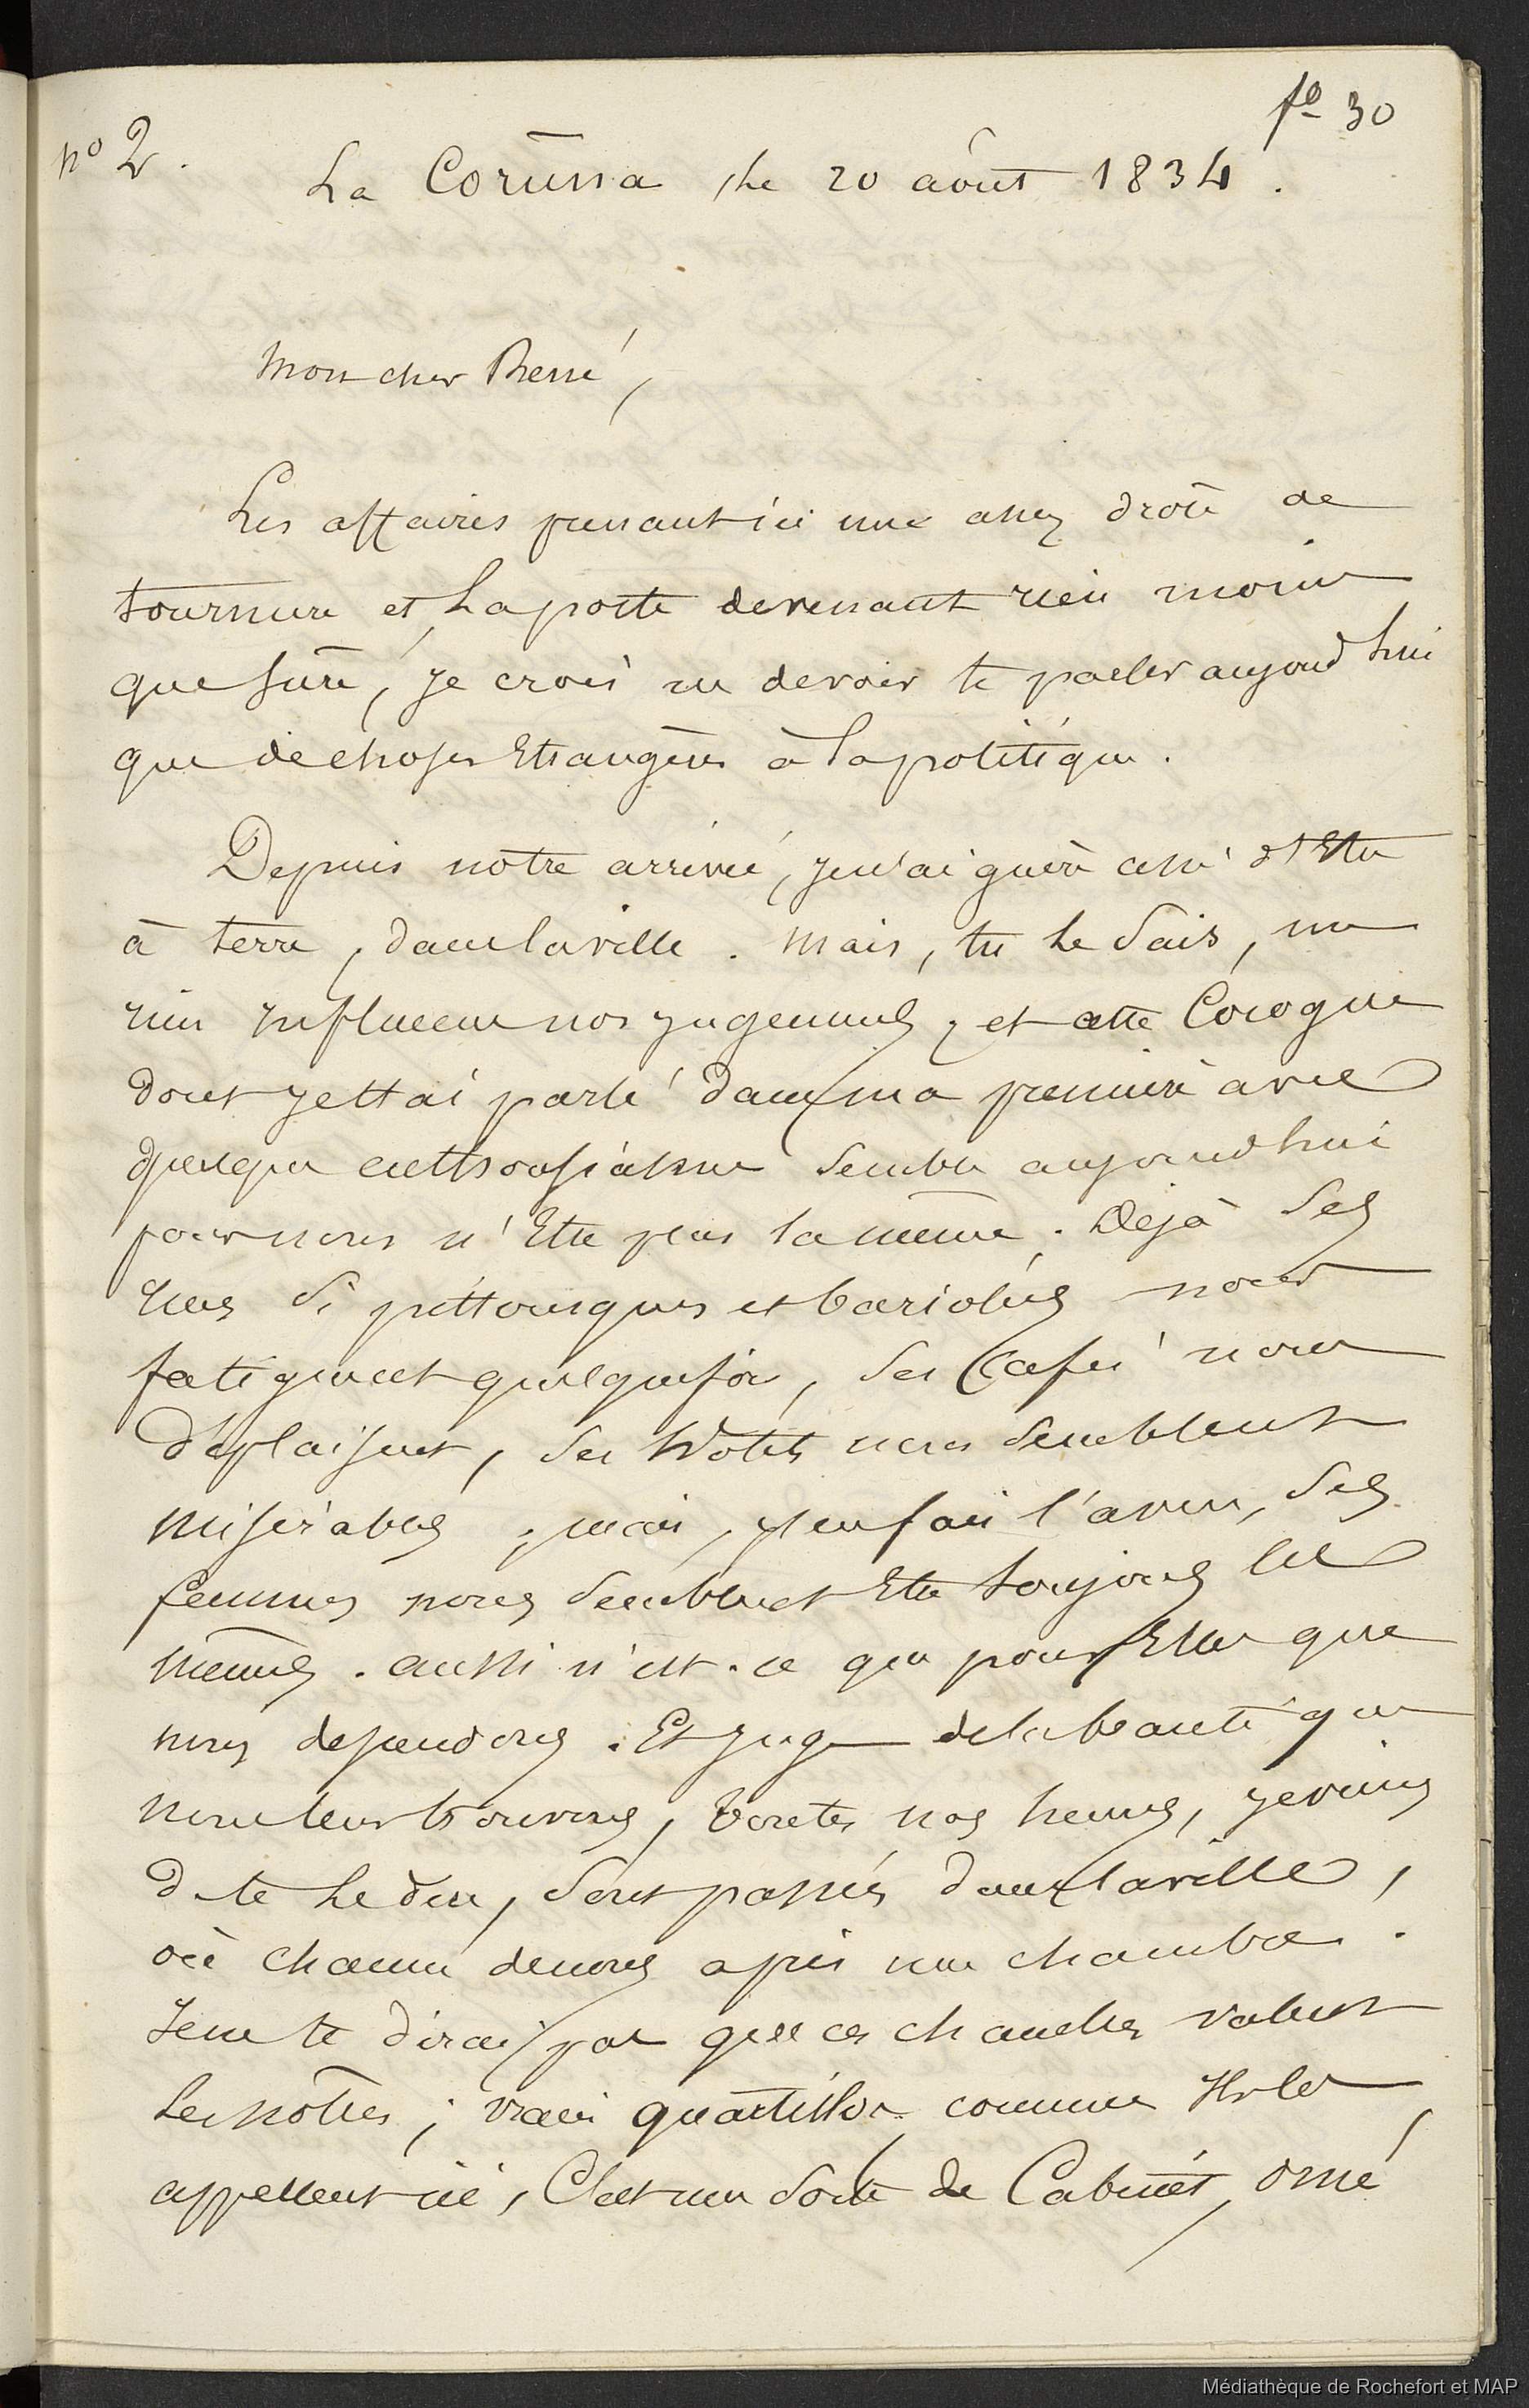 fo 30
no 2.
La Coruna, le 20 août 1834.
Mon cher René,
Les affaires prenant ici une assez drôle de
tournure et, la poste devenant rien moins
que sûre, je crois ne devoir te parler aujourd'hui
que de choses Etrangères à la politique.
Depuis notre arrivée, je n'ai guère cessé d'Etre
à terre, dans la ville. Mais, tu le sais, un
rien influence nos jugements, et cette Corogne
dont je t'ai parlé dans ma première avec
quelque enthousiasme semble aujourd'hui
pour nous n'Etre plus la même. Déjà ses
rues si pittoresques et bariolées nous
fatiguent quelquefois, ses Cafés nous
déplaisent, ses hôtels nous semblent
misérables ; mais, j'en fais l'aveu, ses
femmes nous semblent Etre toujours les
mêmes. aussi n'est-ce que pour Elles que
nous dépendons. Et juge de la beauté que
nous leur trouvons, toutes nos heures, je viens
de te le dire, sont passées dans la ville,
où chacun de nous a pris une chambre.
Je ne te dirai pas que ces chambres valent
les nôtres ; vrais quartillos comme Ils les
appellent ici, C'est une sorte de Cabinet, orné
Médiathèque de Rochefort et MAP